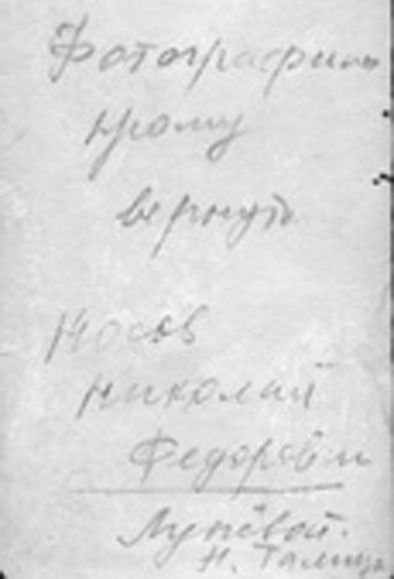 Фотографию
прошу
вернуть
Носов
Николай
Федорович
Лунёвой.
Н. Талица